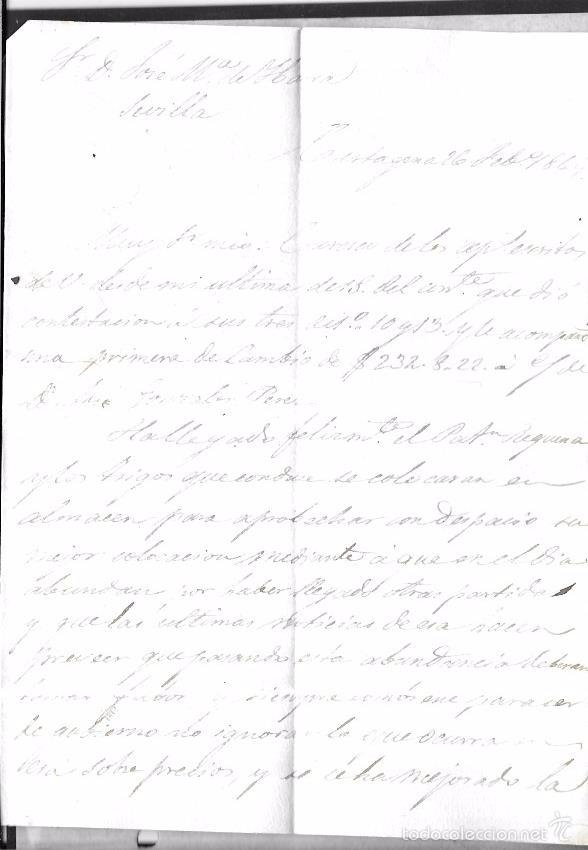 Sr. D. José Ma. de Ybarra
Sevilla
Cartagena 26 Feb. 186
Muy Sr. mio: Carezco de los escritos
de V. desde mi ultima de 15 del corrte. que dió
contestacion á sus tres de 10 y 13. y le acompañé
una primera de Cambio de 232.8.22. á
D. José Gonzalez Perez
Ha llegado felizmte. el Patn. Requena
y los trigos que conduce se colocaran en
almacen para aprobechar con despacio su
mejor colocacion mediante á que en el dia
abundan por haber llegado otras partidas
y que las ultimas noticias de esa hacen
preveer que pasando esta abundancia deberan
tomar fabor y siempre
de gobierno no ignorar lo que ocurra en
esa sobre precios, y si ha mejorado la
todocoleccion.net